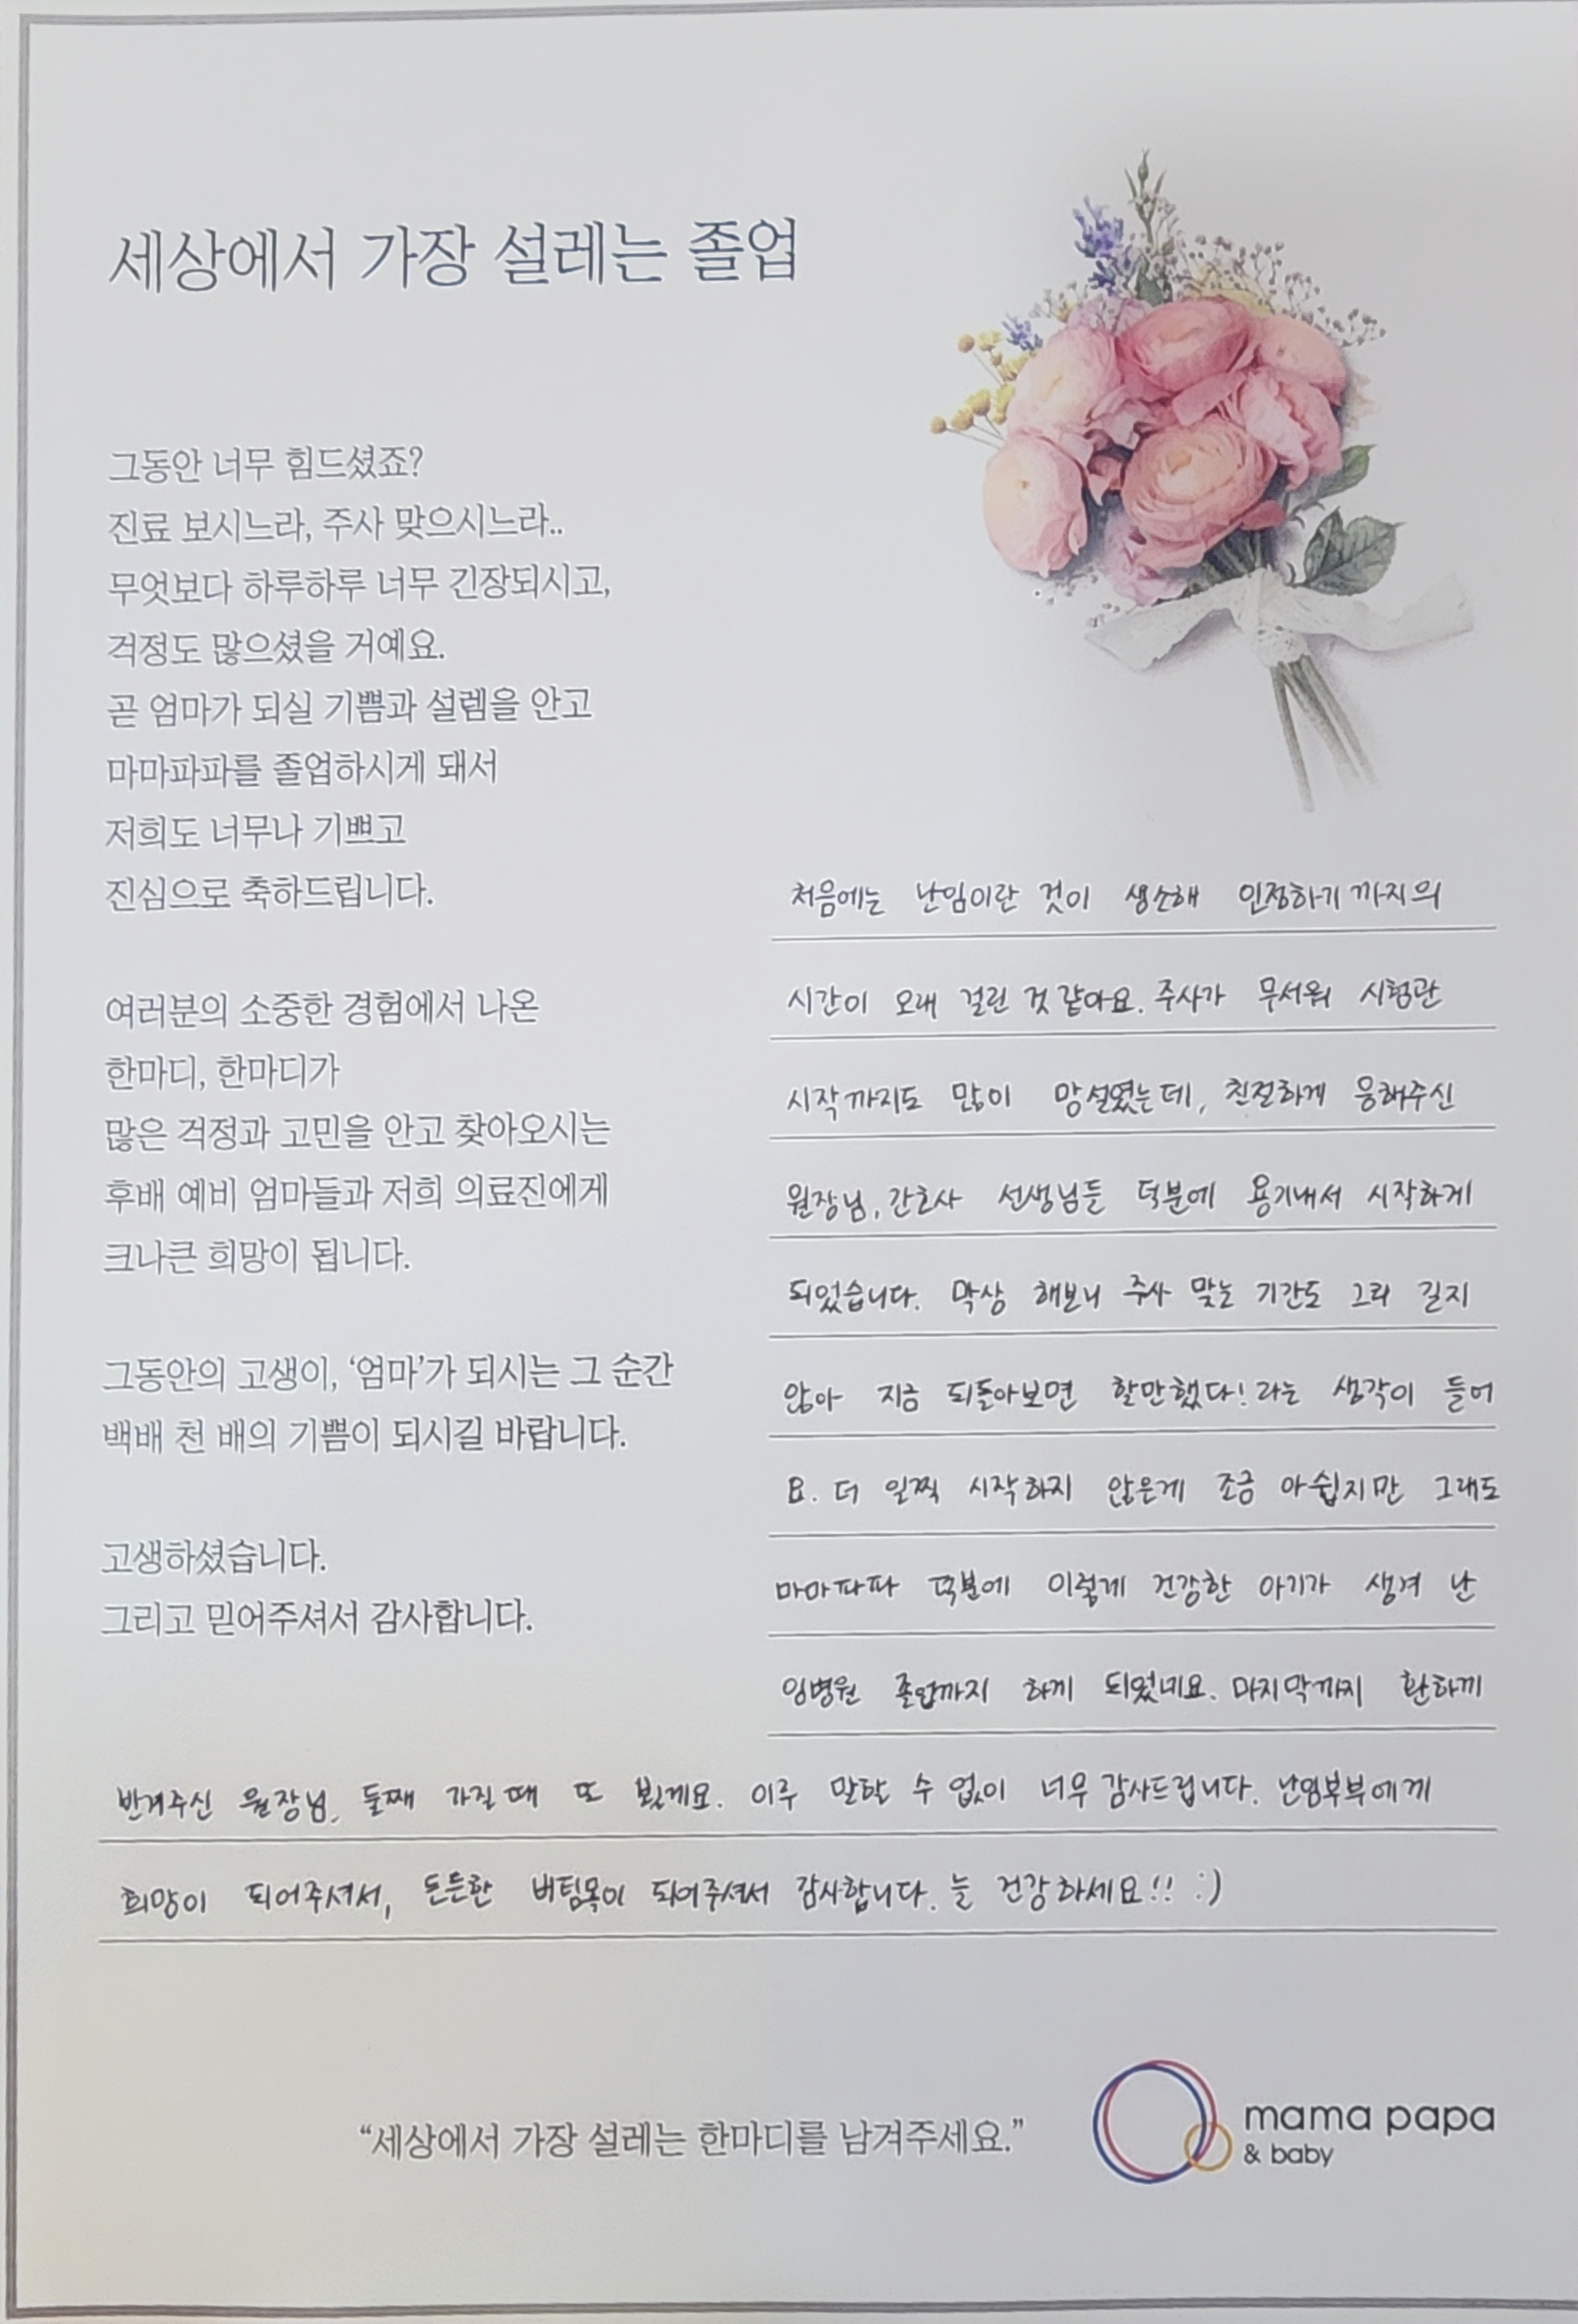 세상에서 가장 설레는 졸업
그동안 너무 힘드셨죠?
진료 보시느라, 주사 맞으시느라..
무엇보다 하루하루 너무 긴장되시고,
걱정도 많으셨을 거예요.
곧 엄마가 되실 기쁨과 설렘을 안고
마마파파를 졸업하시게 돼서
저희도 너무나 기쁘고
진심으로 축하드립니다.
여러분의 소중한 경험에서 나온
한마디, 한마디가
많은 걱정과 고민을 안고 찾아오시는
후배 예비 엄마들과 저희 의료진에게
크나큰 희망이 됩니다.
그동안의 고생이, ‘엄마’가 되시는 그 순간
백배 천 배의 기쁨이 되시길 바랍니다.
고생하셨습니다.
그리고 믿어주셔서 감사합니다.
처음에는 난임이란 것이 생소해 인정하기 까지의
시간이 오래 걸린 것 같아요. 주사가 무서워 시험관
시작까지도 많이 망설였는데, 친절하게 응해주신
원장님, 간호사 선생님들 덕분에 용기내서 시작하게
되었습니다. 막상 해보니 주사 맞는 기간도 그리 길지
않아 지금 되돌아보면 할만했다! 라는 생각이 들어
요. 더 일찍 시작하지 않은게 조금 아쉽지만 그래도
마마파파 덕분에 이렇게 건강한 아기가 생겨 난
임병원 졸업까지 하게 되었네요. 마지막까지 환하게
반겨주신 원장님, 둘째 가질 때 또 뵐게요. 이루 말할 수 없이 너무 감사드립니다. 난임부부에게
희망이 되어주셔서, 든든한 버팀목이 되어주셔서 감사합니다. 늘 건강하세요!! :)
“세상에서 가장 설레는 한마디를 남겨주세요.”
mama papa
& baby